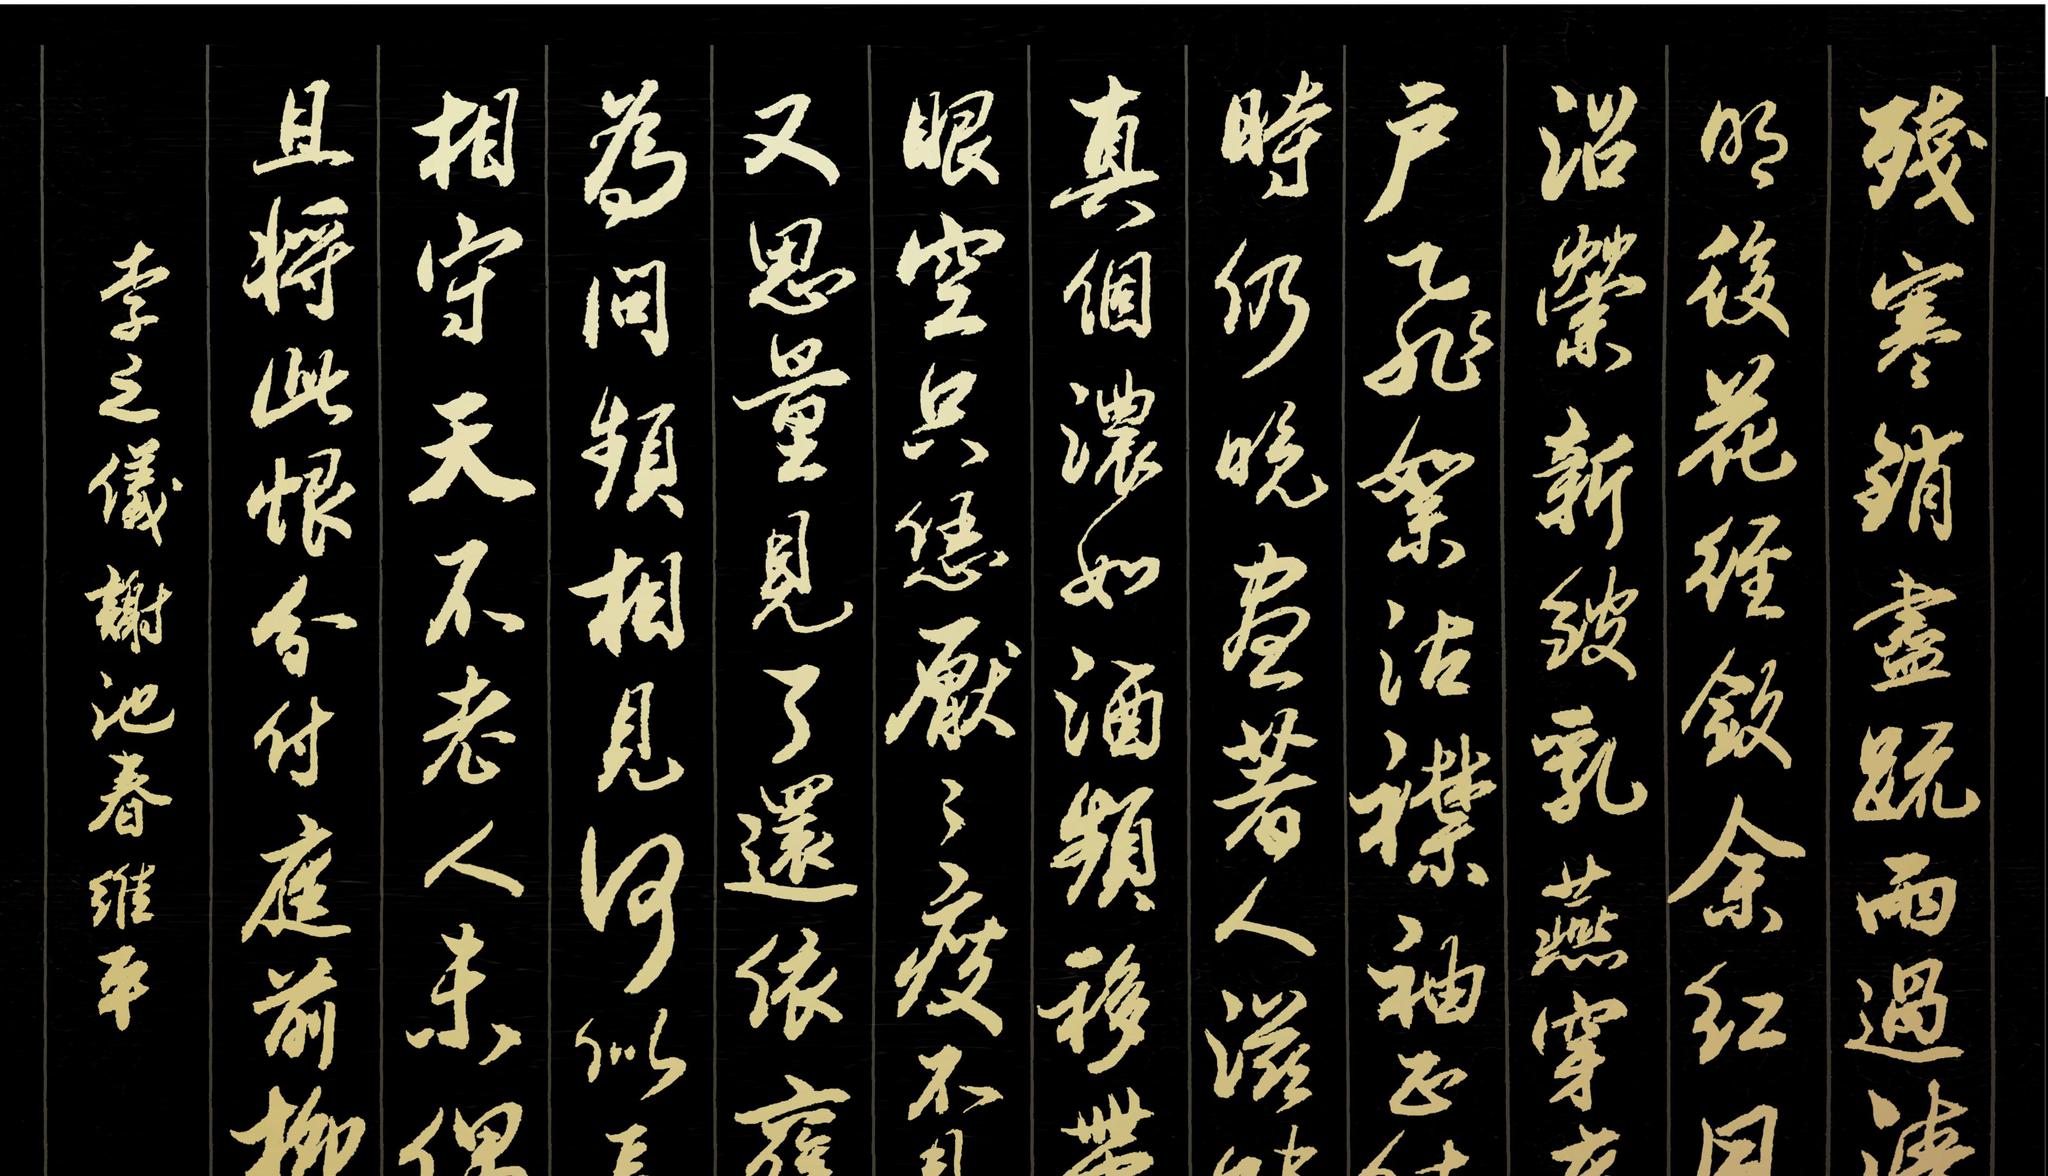 殘寒銷盡疏雨過清
明後花徑斂余紅
沼縈新皺乳燕穿
戶飛絮沾襟袖正
時仍晚晝著人滋
真個濃如酒頻移帶
眼空只恁厭々瘦不
又思量見了還依舊
為問頻相見何似
相守天不老人未偶
且將此恨分付庭前柳
李之儀謝池春維平